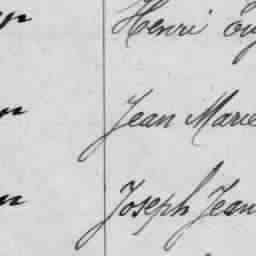 Henri
Jean Marie
Joseph Jean